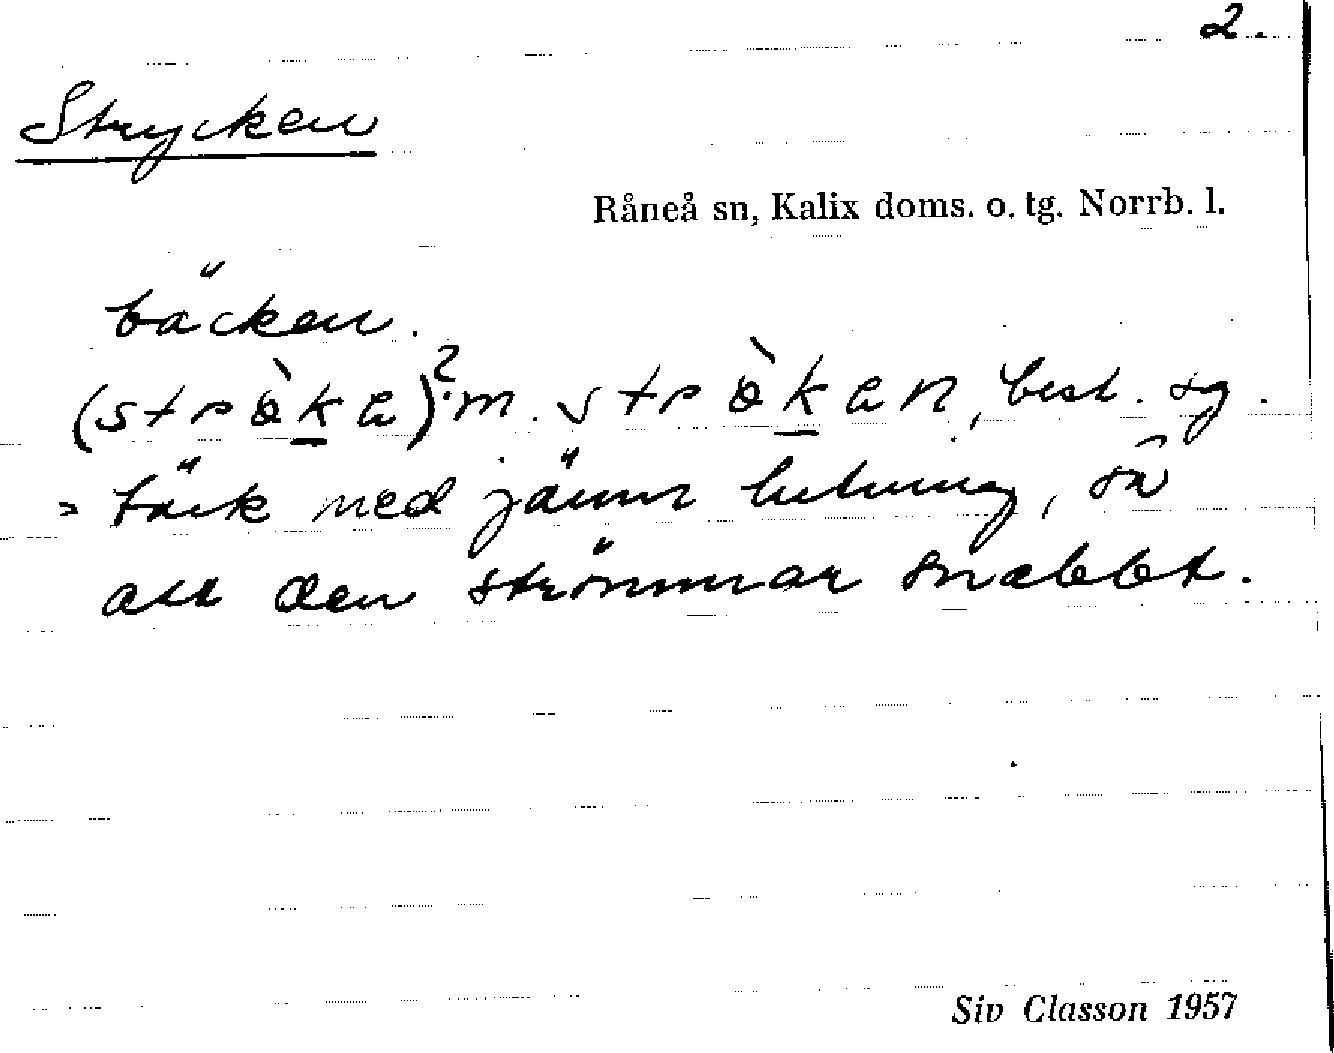 2.
Strycken
Råneå sn, Kalix doms. o. tg. Norrb. l.
bäcken.
m. best. sg.
= bäck med jämn lutning, så
att den strömmar snabbt.
Siv Classon 1957